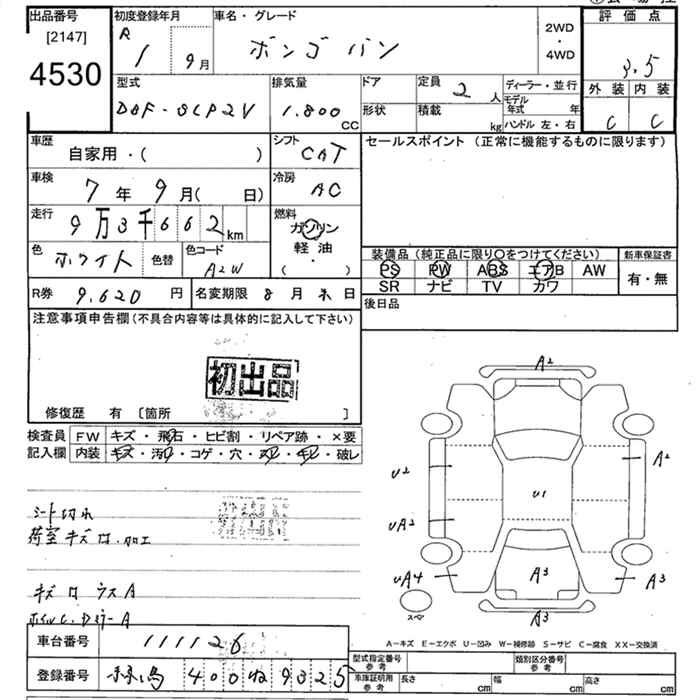 出品番号
[2147]
4530
初度登録年月
R 1 9月
車名・グレード
ボンゴバン
2WD
・
4WD
評価点
3.5
外装 内装
C C
型式
DBF-SLP2V
排気量
1.800
CC
ドア
形状
定員 2 人
積載 kg
ディーラー・並行
モデル年式 年
ハンドル 左・右
車歴
自家用・( )
シフト
CAT
車検
7年9月( 日)
冷房
AC
走行
9万3千662km
燃料
ガソリン
軽油
( )
色
ホワイト
色替
色コード
A2W
R券 9.620 円
名変期限 8月末日
セールスポイント (正常に機能するものに限ります)
装備品(純正品に限り○をつけてください)
PS PW ABS エアB AW
SR ナビ TV カワ
新車保証書
有・無
後日品
注意事項申告欄(不具合内容等は具体的に記入して下さい)
初出品
修復歴 有 [箇所 ]
検査員記入欄
FW キズ・飛石・ヒビ割・リペア跡・×要
内装 キズ・汚れ・コゲ・穴・スレ・キレ・破レ
シート切れ
荷室キズロ.加工
キズロ ウスA
ホイルC.DミラーA
A2
U2
A2
U1
UA2
UA4
A3
A3
A3
スペア
A−キズ E−エクボ U−凹み W−補修跡 S−サビ C−腐食 XX−交換済
車台番号 111126
登録番号 400 ね 9325
型式指定番号 参考
類別区分番号 参考
車庫証明用 参考 長さ cm 幅 cm 高さ cm